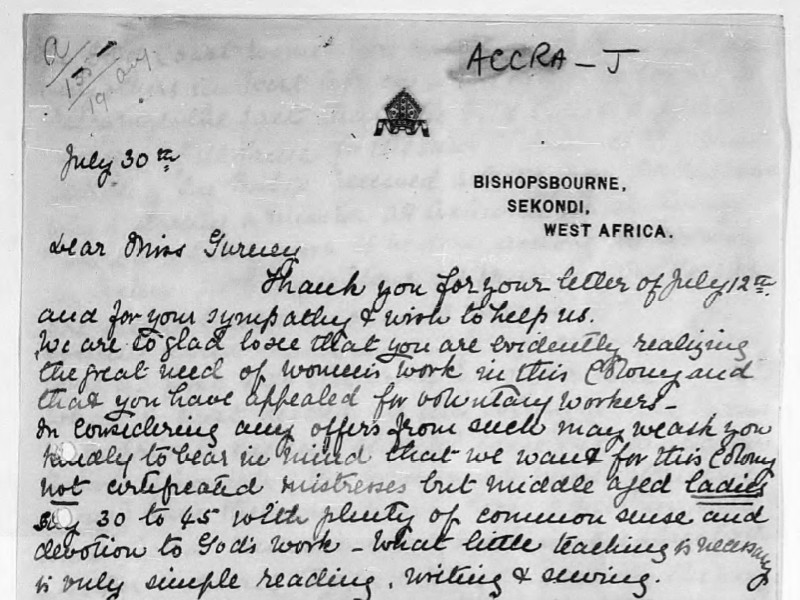 R/
15/
19 Aug
ACCRA - J
July 30th
BISHOPSBOURNE,
SEKONDI,
WEST AFRICA.
Dear Miss Gurney
Thank you for your letter of July 12th.
and for your sympathy & wish to help us.
We are to glad to see that you are evidently realizing
the great need of women's work in this Colony and
that you have appealed for voluntary workers -
In considering any offers from such may we ask you
kindly to bear in mind that we want for this Colony
not certificated mistresses but middle aged ladies
say 30 to 45 with plenty of common sense and
devotion to God's work - What little teaching is necessary
is only simple reading, writing & sewing.